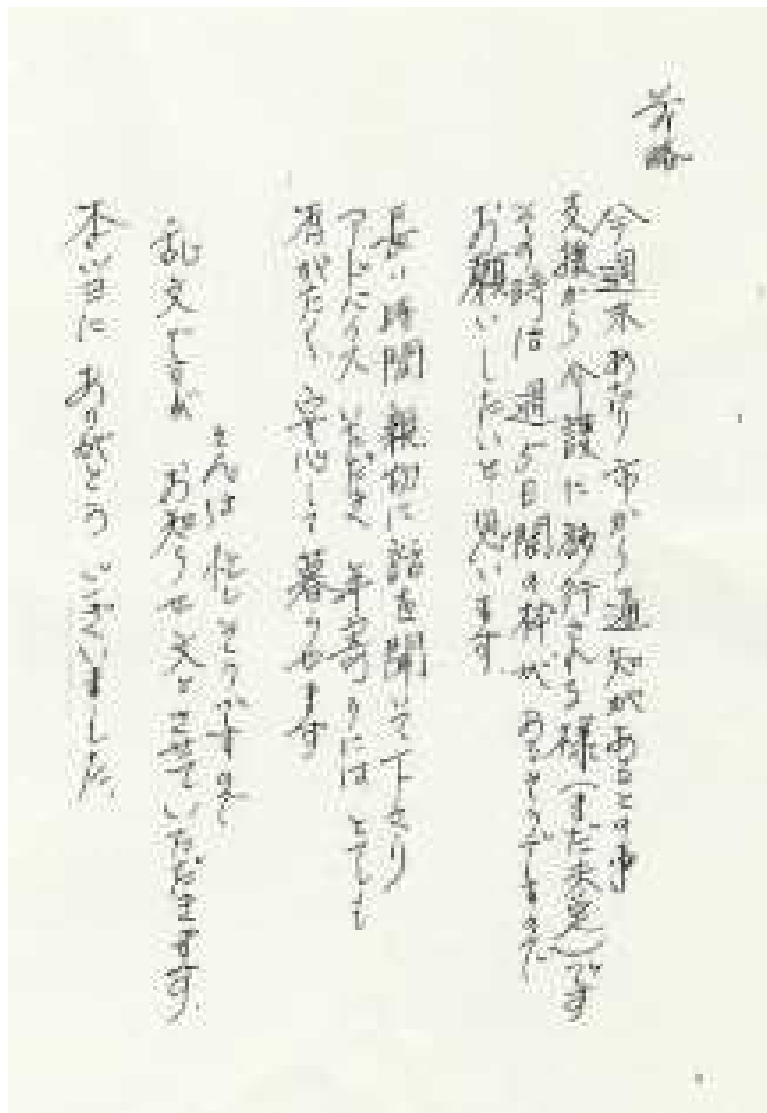 前略
今週末あたり市から通知があるとの事
支援から介護に移行する様(まだ未定)です
その時は週5日間の枠が あるそうですので
お願いしたいと思います
長い時間 親切に話を聞いて下さり
アドバイス いただき 年寄りには とても
有がたく 安心して 暮らせます
さんは忙しそうですので
乱文ですが お知らせ文とさせていただきます
本当に ありがとうございました